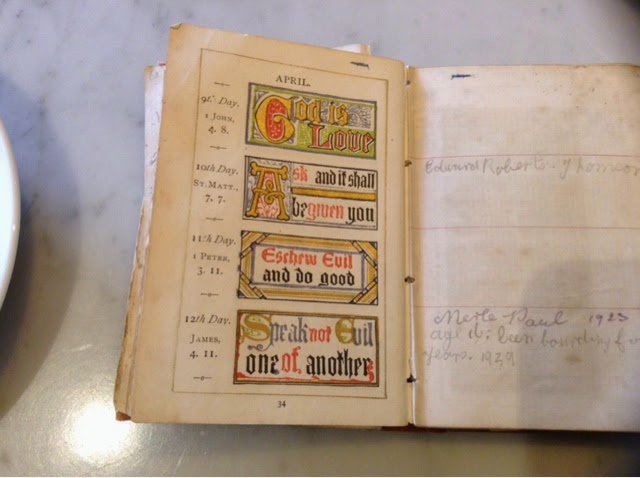 APRIL.
9th Day.
1 JOHN,
4. 8.
God is
Love
10th Day.
ST. MATT.,
7, 7.
Ask and it shall
be given you
11th Day.
1 PETER,
3. 11.
Eschew Evil
and do good
12th Day.
JAMES,
4. 11.
Speak not Evil
one of another
34
Edward Roberts.
Merle Paul 1923
age 16: been boarding
years. 1939